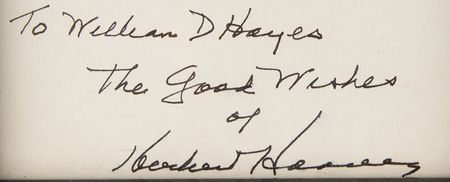 To William D Hayes
The Good Wishes
of
Herbert Hoover